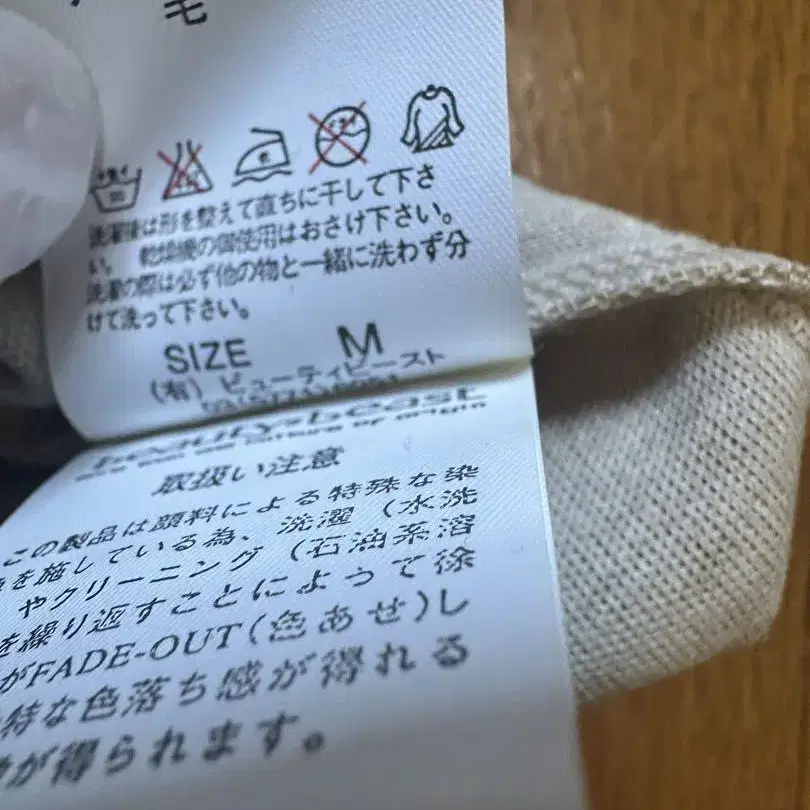 毛
洗濯後は形を整えて直ちに干して下さ
い。 乾燥機の御使用はおさけ下さい。
洗濯の際は必ず他の物と一緒に洗わず分
けて洗って下さい。
SIZE M
(有) ビューティビースト
beauty:beast
取扱い注意
この製品は顔料による特殊な染
を施している為、洗濯 (水洗
やクリーニング (石油系溶
を繰り返すことによって徐
がFADE-OUT(色あせ)し
特な色落ち感が得れる
が得られます。